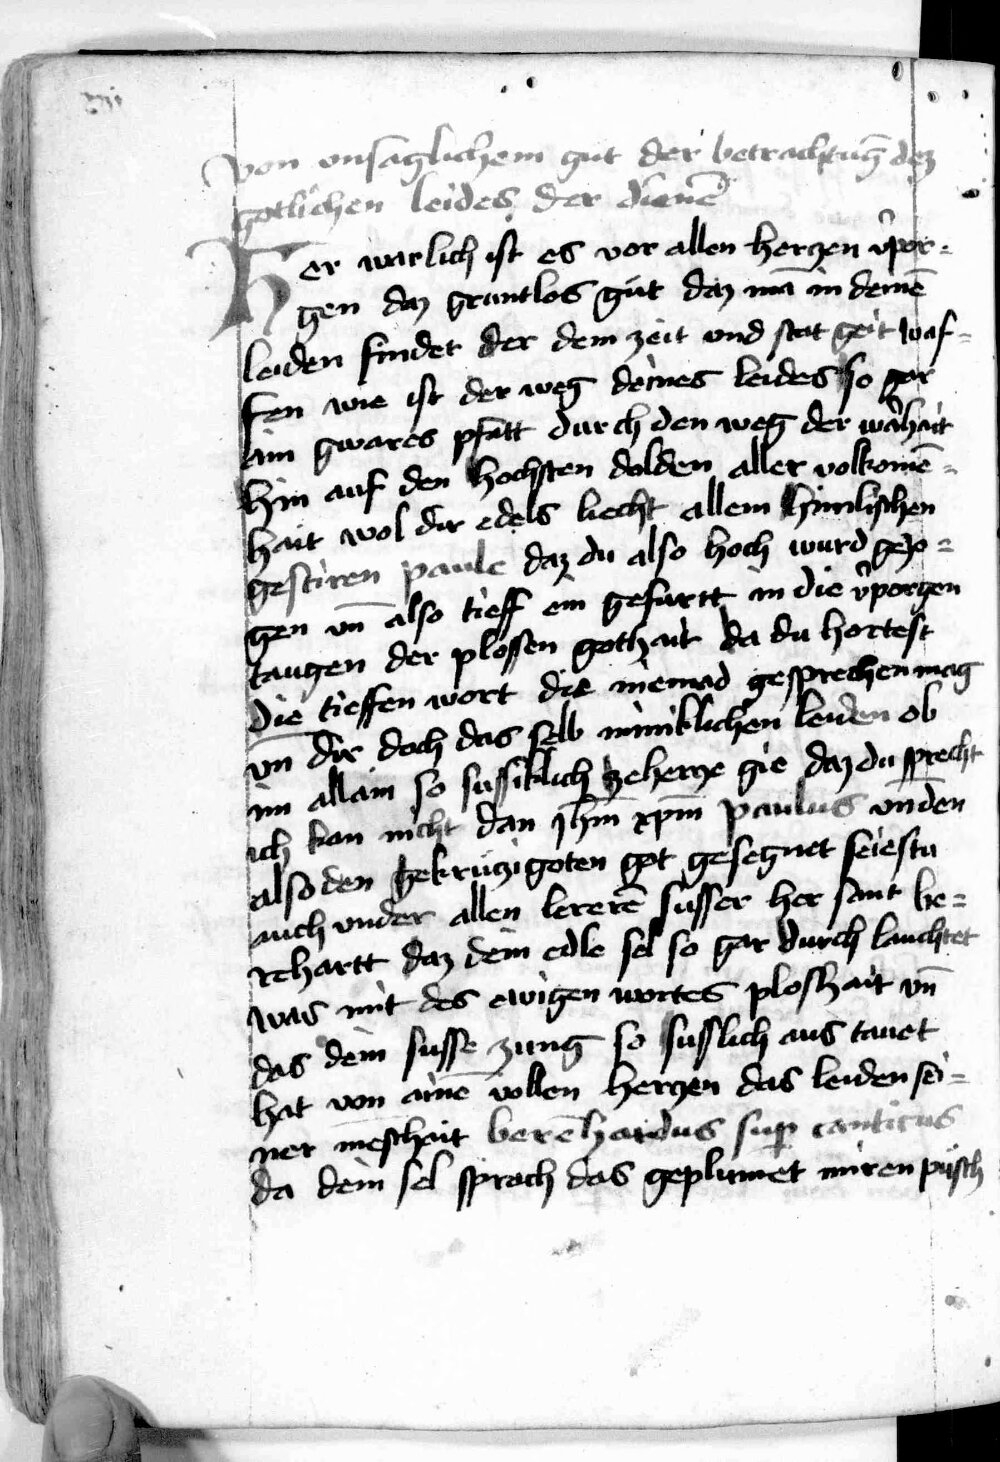 von vnsaglichem gut der betrachtūg dez
gotlichen leides der dienē
Her warlich ist es vor allen hertzen v̂por=
gen daz gruntlos gut daz mā in deinē
leiden findet der dem zeit vnd stat geit waf=
fen wie ist der weg deines leides so gar
ain gwares pfatt durch den weg der warhait
hin auf den hochsten dolden aller volkomē=
hait wol dir edels liecht allem himlischen
gestiren paule daz du also hoch wurd gezo=
gen vn̄ also tieff ein gefurtt in die v̂porgen
taugen der plossen gothait da du hortest
die tieffen wort die niemād gesprechen mag
vn̄ dir doch das selb minniklichen leiden ob
im allain so sussiklich ze hertze gie daz du sprecht
ich kan nicht dan jhm̄ xp̄m paulus vn̄ den
also den gekrutzigoten got gesegnet seiestu
auch vnder allen lererē susser her sant be=
rhartt daz dein edle sel so gar durch lauchtet
was mit des ewigen wortes ploshait vn̄
das dein susse zung so susslich aus tauet
hat von ainē vollen hertzen das leiden sei=
ner mēschait berēhardus sup̄ canticus
da dein sel sprach das geplumet miren pusch